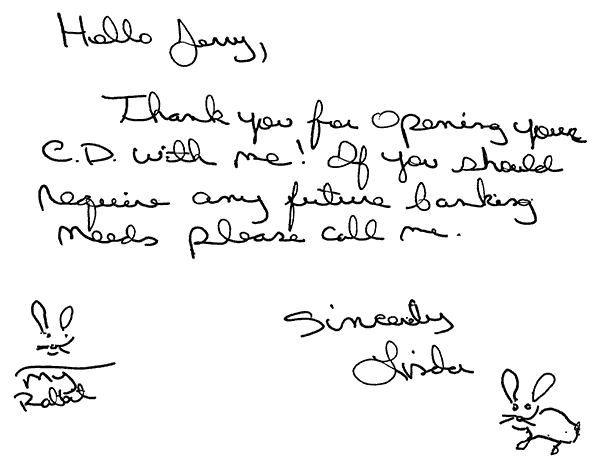 Hello Jerry,
Thank you for opening your
C.D. with me! If you should
require any future banking
needs please call me.
Sincerely
Linda
My
Rabbit